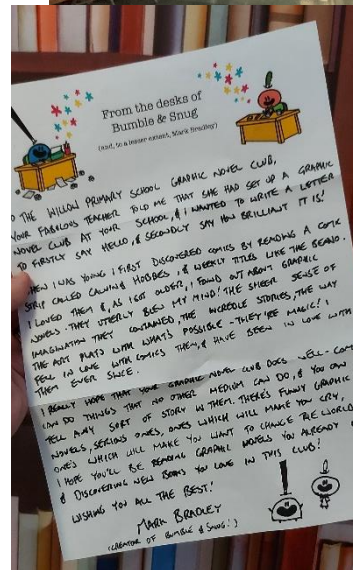 From the desks of
Bumble & Snug
(and, to a lesser extent, Mark Bradley)
THE WILLOW PRIMARY SCHOOL GRAPHIC NOVEL CLUB,
YOUR FABULOUS TEACHER TOLD ME THAT SHE HAD SET UP A GRAPHIC
NOVEL CLUB AT YOUR SCHOOL, & I WANTED TO WRITE A LETTER
TO FIRSTLY SAY HELLO, & SECONDLY SAY HOW BRILLIANT IT IS!
WHEN I WAS YOUNG I FIRST DISCOVERED COMICS BY READING A COMIC
STRIP CALLED CALVIN & HOBBES, & WEEKLY TITLES LIKE THE BEANO.
I LOVED THEM &, AS I GOT OLDER, I FOUND OUT ABOUT GRAPHIC
NOVELS - THEY UTTERLY BLEW MY MIND! THE SHEER SENSE OF
IMAGINATION THEY CONTAINED, THE INCREDIBLE STORIES, THE WAY
THE ART PLAYS WITH WHAT'S POSSIBLE - THEY'RE MAGIC! I
FELL IN LOVE WITH COMICS THEN, & HAVE BEEN IN LOVE WITH
THEM EVER SINCE.
I REALLY HOPE THAT YOUR GRAPHIC NOVEL CLUB DOES WELL - COMICS
CAN DO THINGS THAT NO OTHER MEDIUM CAN DO, & YOU CAN
TELL ANY SORT OF STORY IN THEM. THERE'S FUNNY GRAPHIC
NOVELS, SERIOUS ONES, ONES WHICH WILL MAKE YOU CRY,
ONES WHICH WILL MAKE YOU WANT TO CHANGE THE WORLD.
I HOPE YOU'LL BE READING GRAPHIC NOVELS YOU ALREADY
& DISCOVERING NEW BOOKS YOU LOVE IN THIS CLUB!
WISHING YOU ALL THE BEST!
MARK BRADLEY
(CREATOR OF BUMBLE & SNUG!)